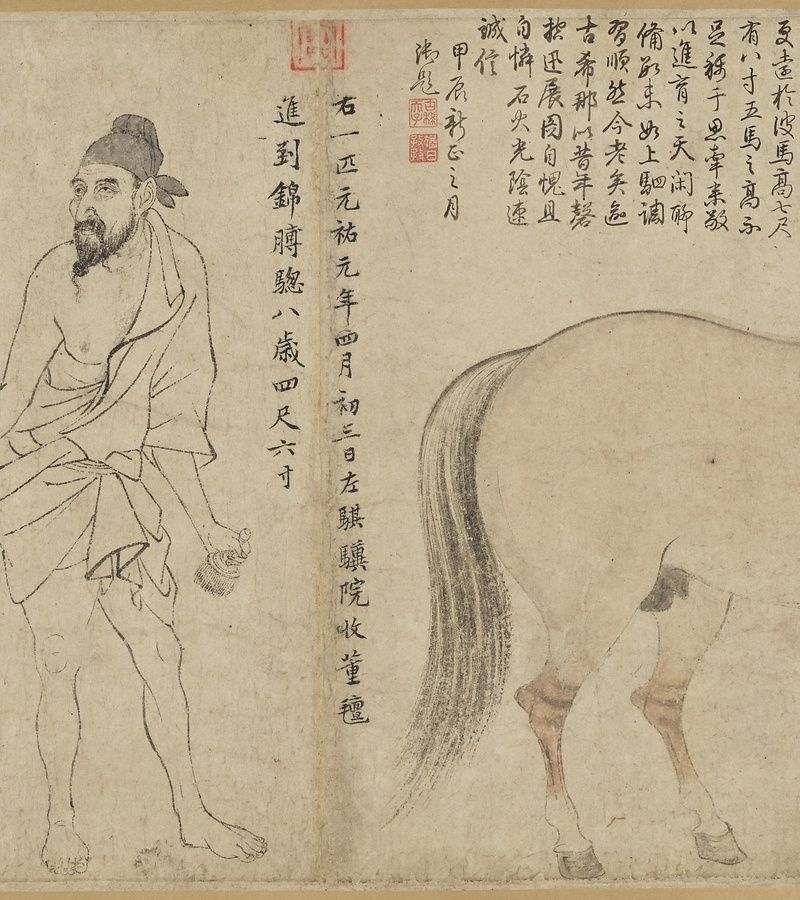 馬高七尺
有八寸五馬之高不
足稱于思牽来敬
以進育之天閑聊
備數未如上駟調
習順然今老矣逾
古希那以昔年磬
控迅展圖自愧且
自憐石火光陰速
誠信
甲辰新正之月
御題
古稀天子
猶日孜孜
右一匹元祐元年四月初三日左騏驥院收董氊
進到錦膊驄八歲四尺六寸